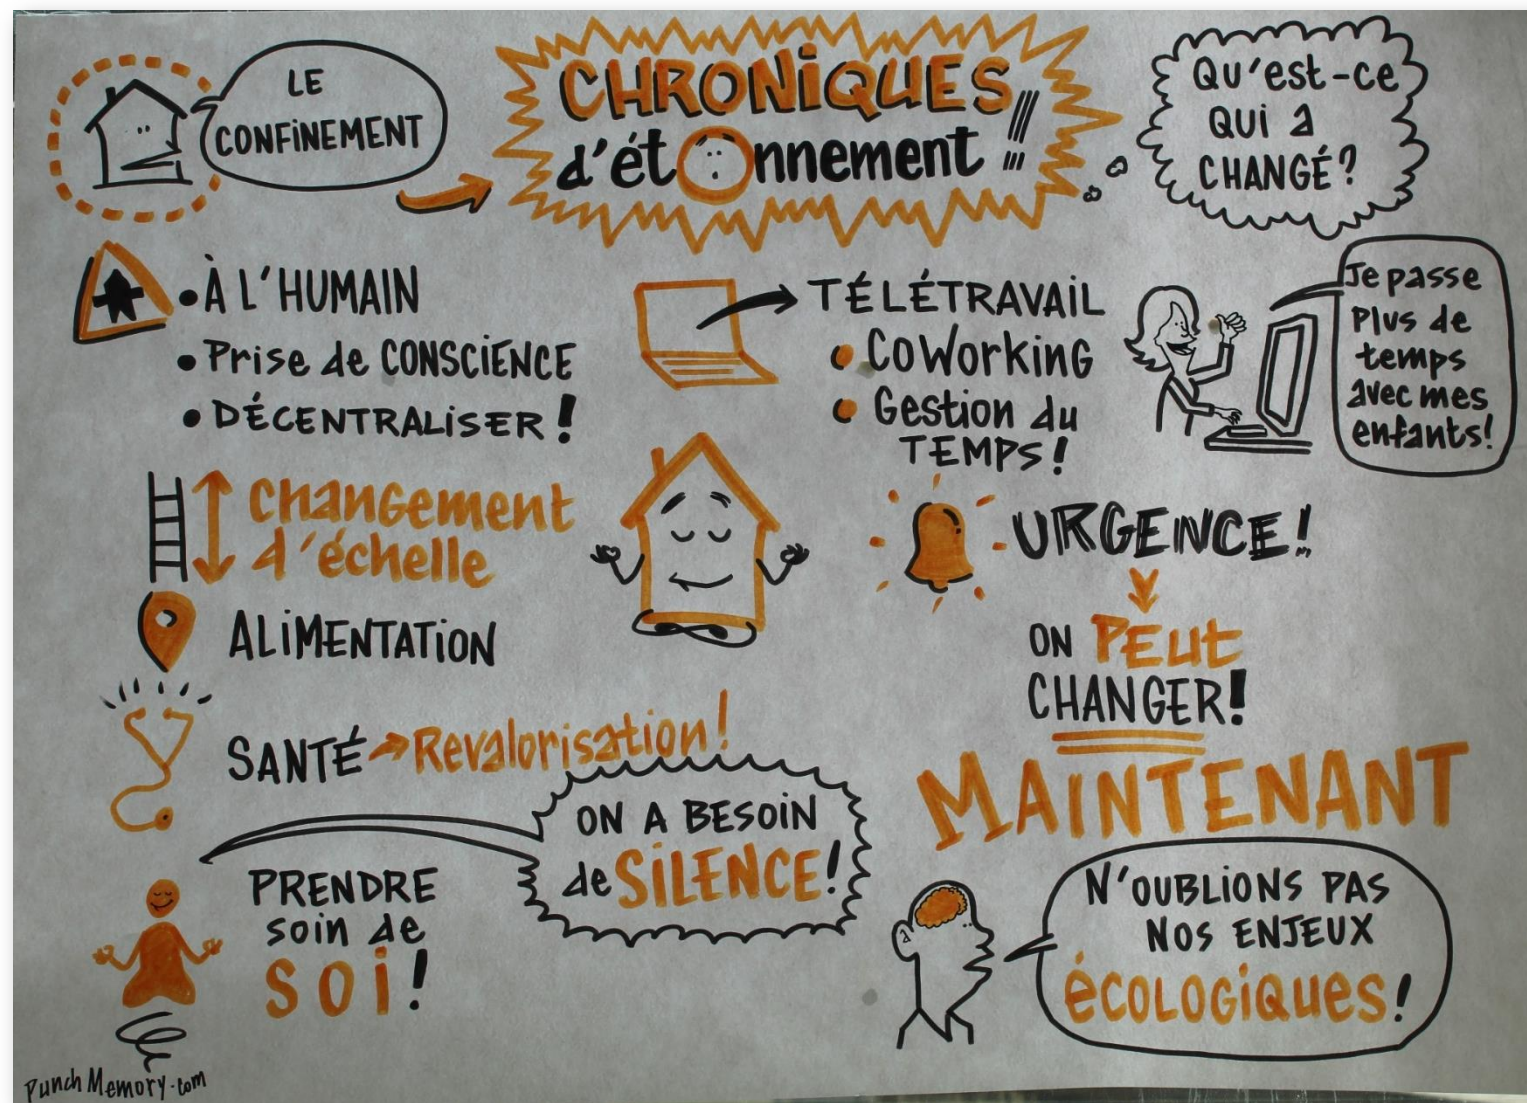 LE
CONFINEMENT
CHRONIQUES
d'étOnnement !!!
Qu'est-ce
QUI a
CHANGÉ?
• À L'HUMAIN
• Prise de CONSCIENCE
• DÉCENTRALISER !
TÉLÉTRAVAIL
• CoWorking
• Gestion du
TEMPS !
Je passe
Plus de
temps
avec mes
enfants!
Changement
d'échelle
ALIMENTATION
SANTÉ → Revalorisation !
ON A BESOIN
de SILENCE !
PRENDRE
soin de
SOI !
URGENCE !
ON PEUT
CHANGER !
MAINTENANT
N'OUBLIONS PAS
NOS ENJEUX
écologiques !
Punch Memory.com